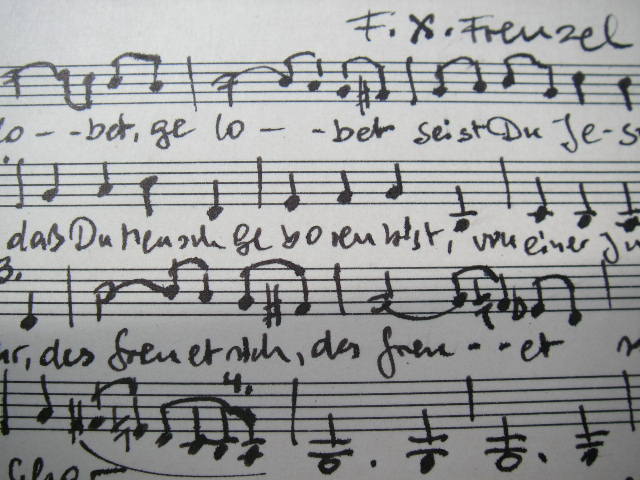 F. X. Frenzel
lo - - bet, ge lo - - bet seist Du Je-s
daß Du Mensch geboren bist, von einer Ju
3.
hr, des freuet sich, des freu - - et
4.